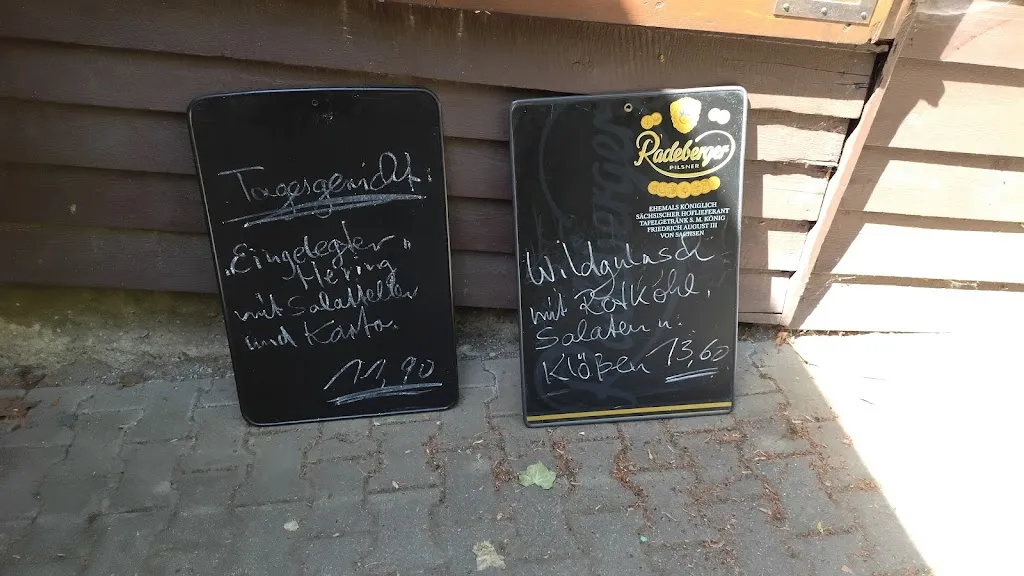 Tagesgericht:
„Eingelegter"
Hering
mit Salatteller
und Karto.
11,90
Radeberger
PILSNER
EHEMALS KÖNIGLICH
SÄCHSISCHER HOFLIEFERANT
TAFELGETRÄNK S. M. KÖNIG
FRIEDRICH AUGUST III
VON SACHSEN
Wildgulasch
mit Rotkohl,
Salaten u.
Klößen 13,60